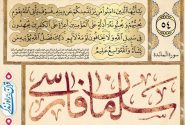 يا أيها الذين آمنوا من يرتد منكم عن دينه فسوف يأتي الله بقوم
يحبهم ويحبونه أذلة على المؤمنين أعزة على الكافرين
يجاهدون في سبيل الله ولا يخافون لومة لائم ذلك فضل الله
يؤتيه من يشاء والله واسع عليم
٥٤
سورة المائدة
سلمان فارسی